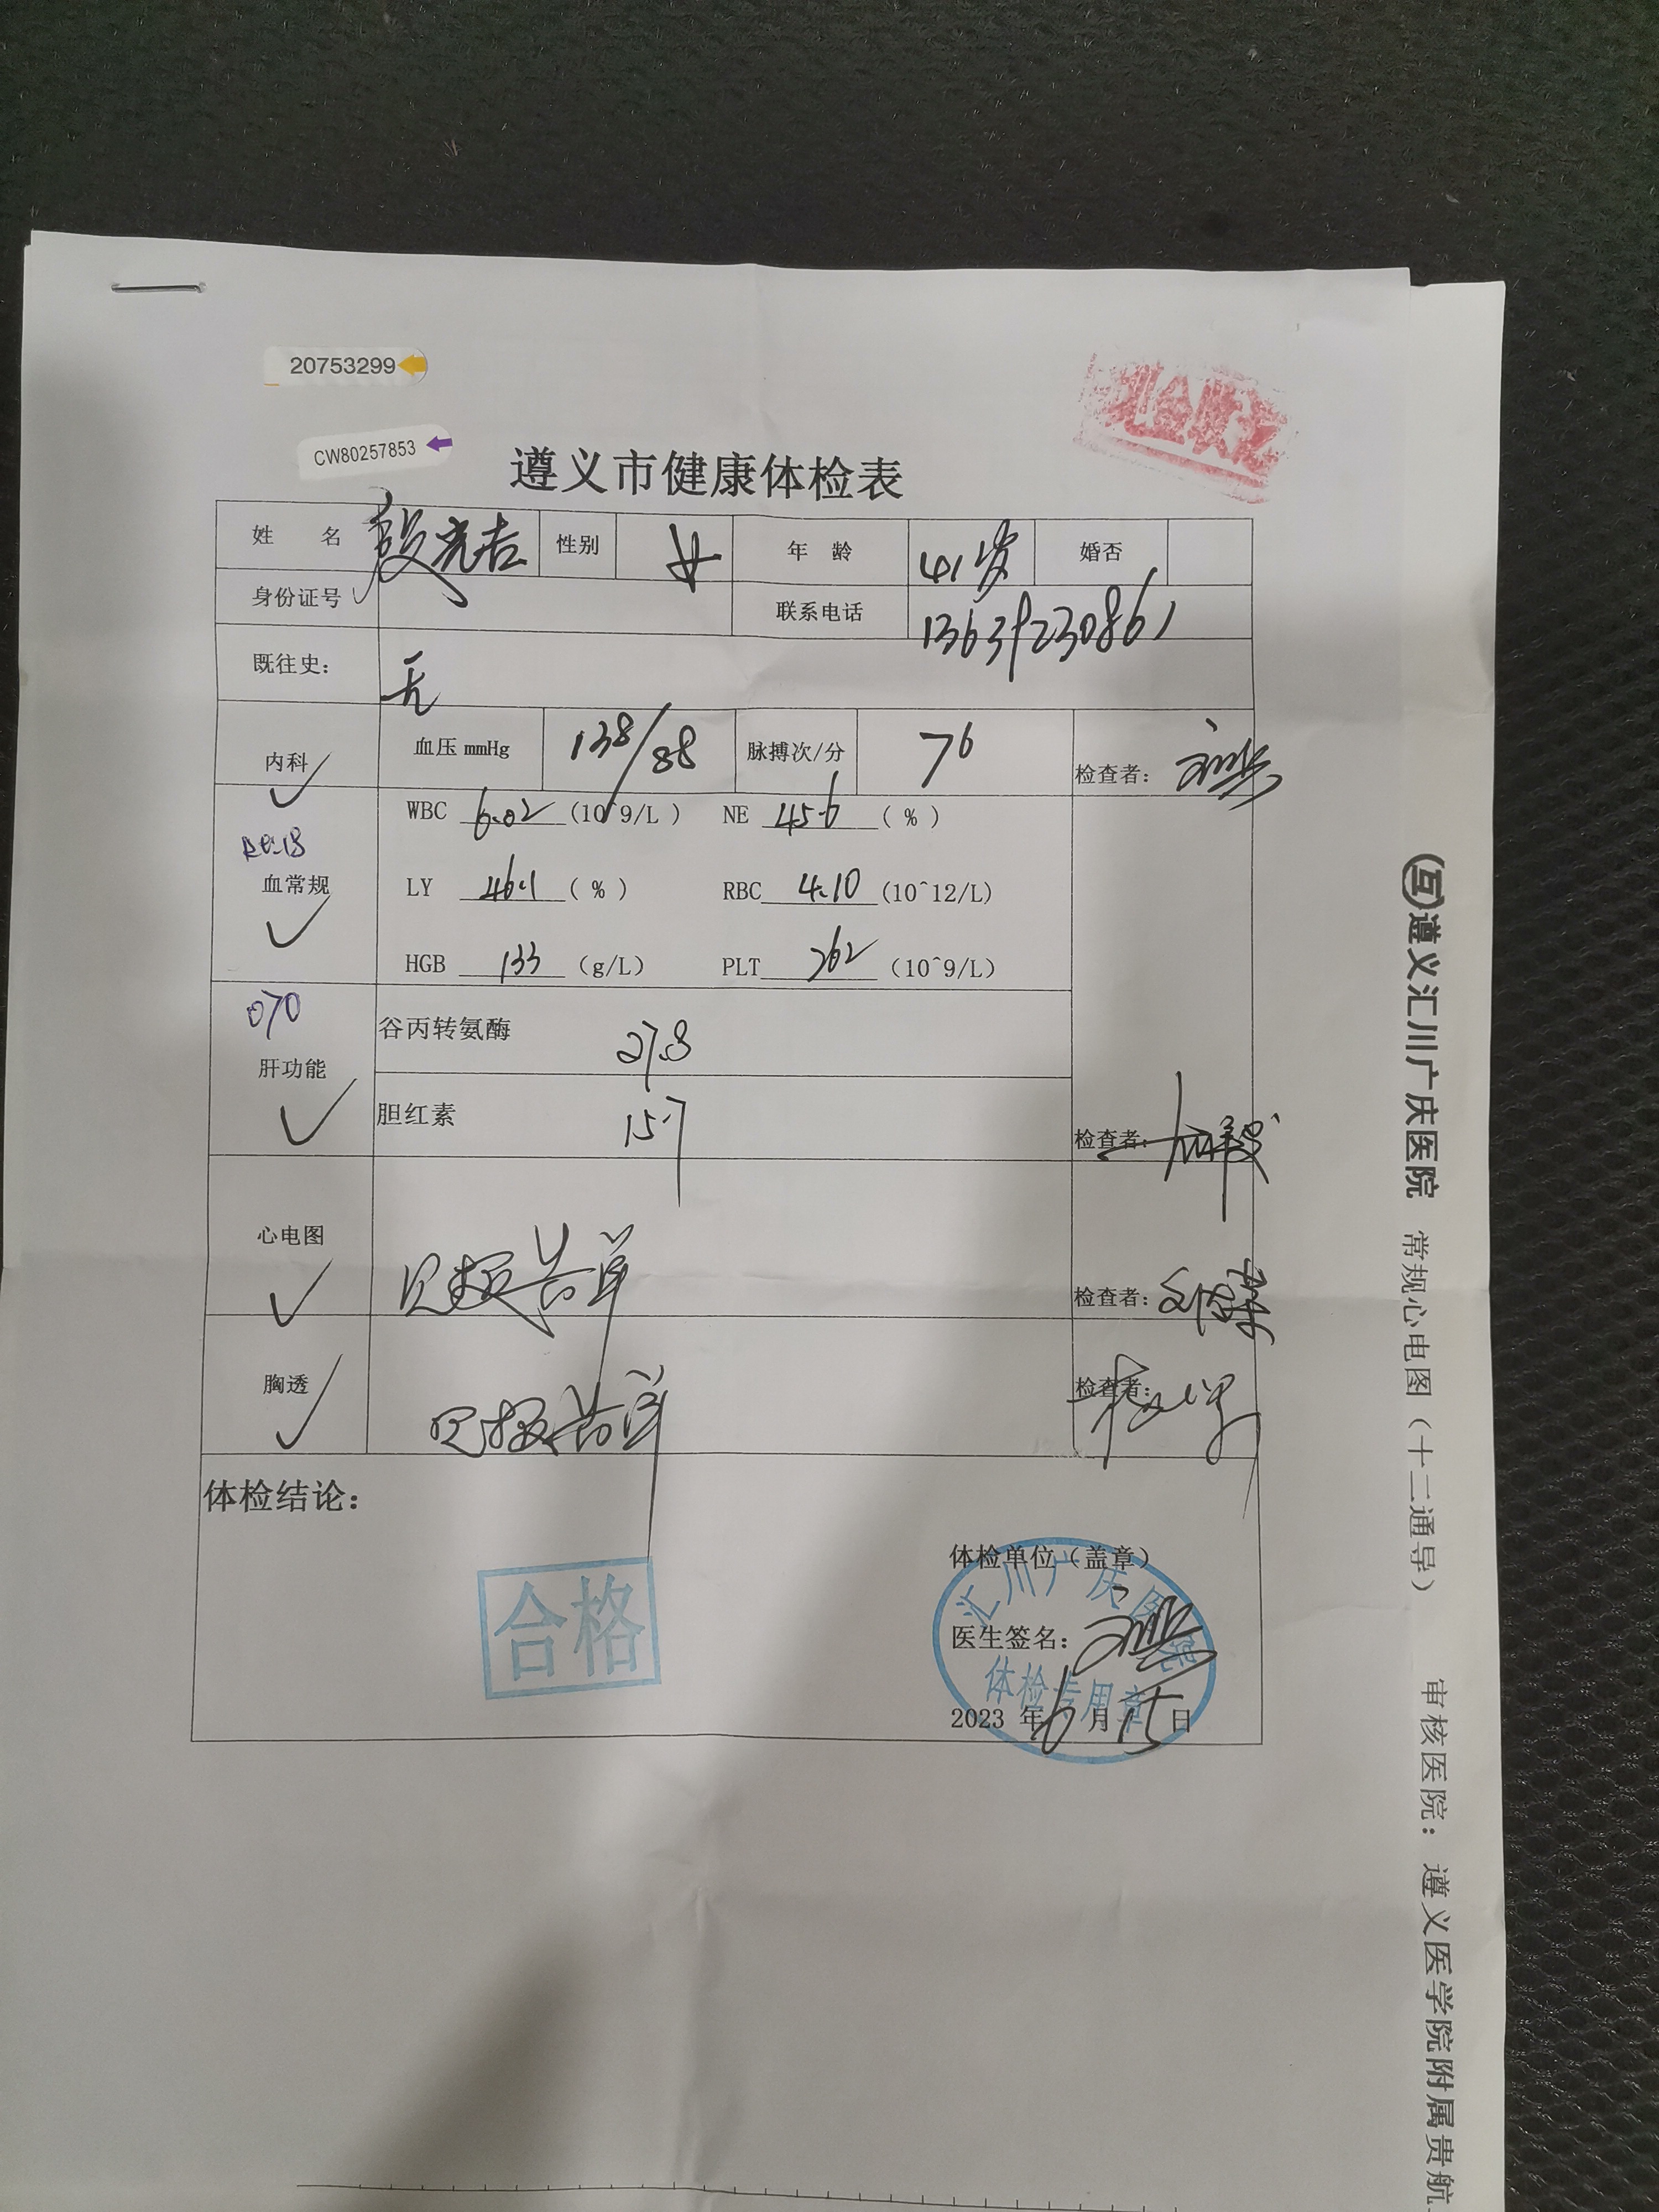 20753299
CW80257853
遵义市健康体检表
姓 名 性别 女 年 龄 41岁 婚否
身份证号 联系电话
既往史： 无
内科 血压 mmHg 138/88 脉搏次/分 76 检查者：
血常规
WBC 6.02 (10^9/L ) NE 45.6 ( % )
LY 46.1 ( % ) RBC 4.10 (10^12/L)
HGB 133 (g/L) PLT 262 (10^9/L)
070
肝功能
谷丙转氨酶 27.8
胆红素 15.7
检查者：
心电图 见报告单 检查者：
胸透 见报告单 检查者：
体检结论：
合格
体检单位（盖章）
汇川广庆医院
医生签名：
体检专用章
2023 年 6 月 15 日
互 遵义汇川广庆医院 常规心电图（十二通导） 审核医院：遵义医学院附属贵航